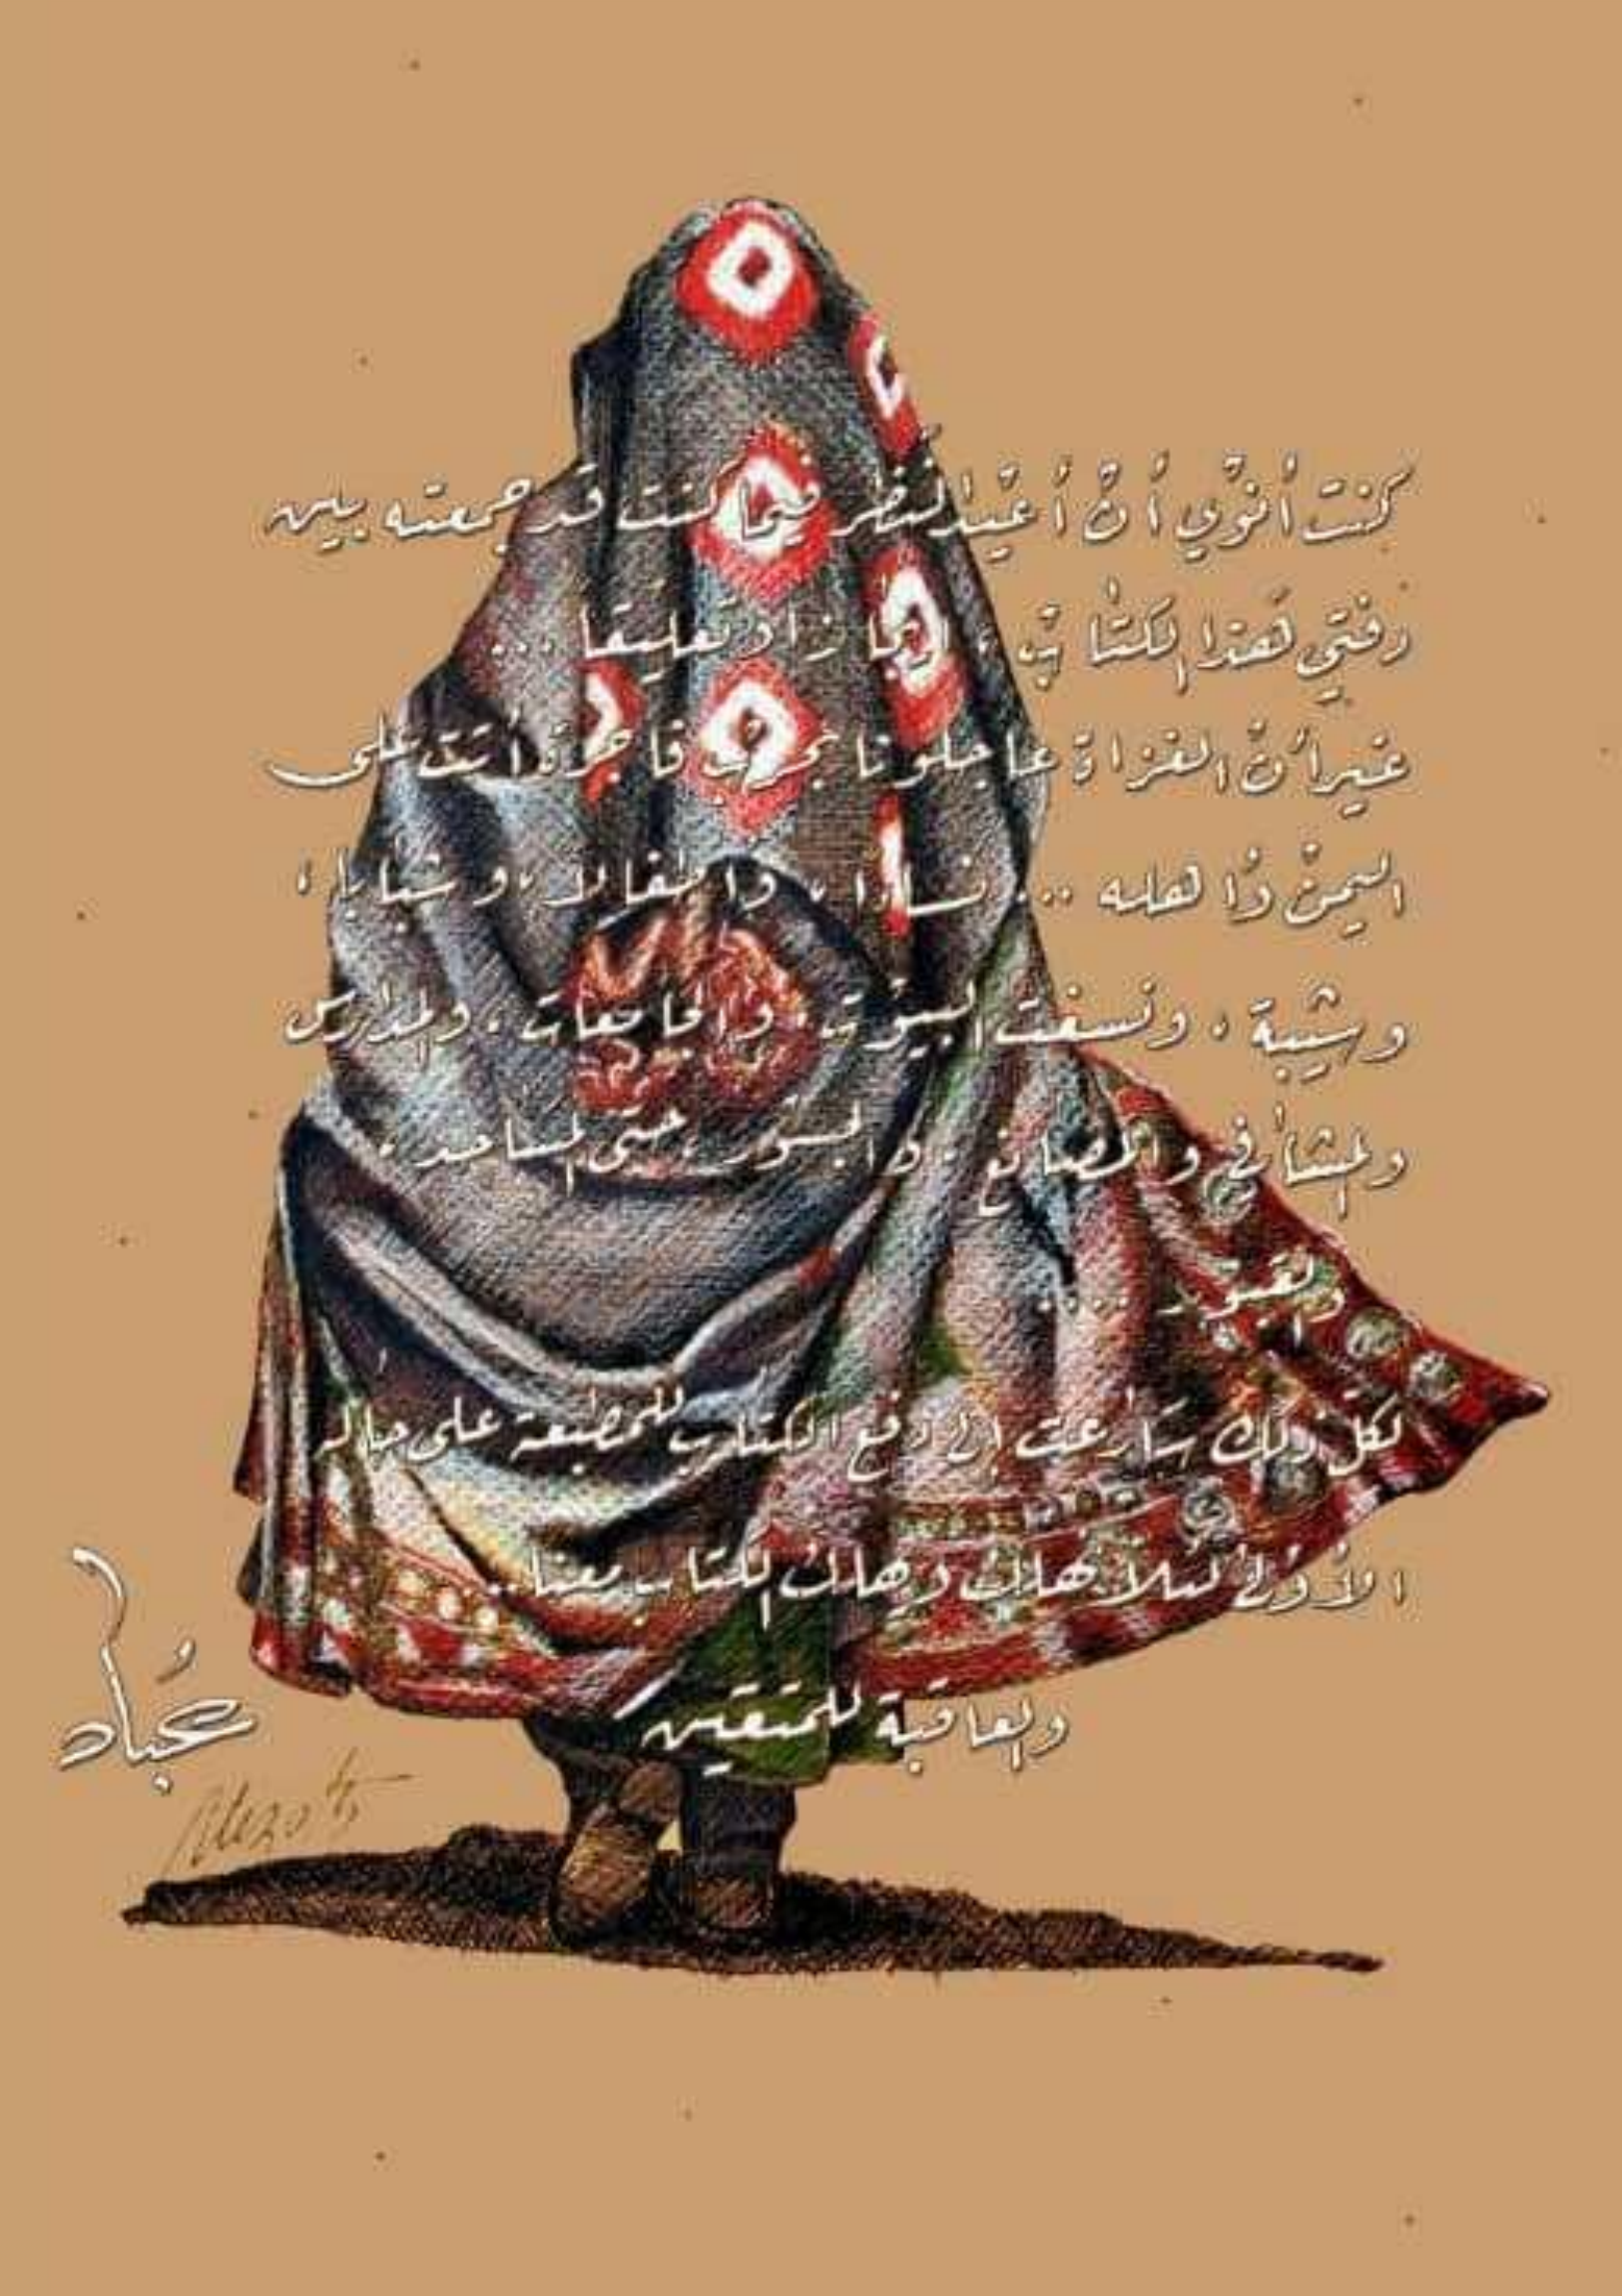 كنت أنوي أن أعيد النظر فيما كنت قد جمعته بين
دفتي هذا الكتاب، زاد تعليقا ...
غير أن الغزاة عاجلونا بحرب فاجرة أتت على
اليمن وأهله ... نساءً، وأطفالا، وشبابا،
وشيبة، ونسفت البيوت، والجامعات، والمدارس
والمشافي والمصانع، والجسور، حتى المساجد،
والقبور ....
لكل ذلك سارعت إلى دفع الكتاب للمطبعة على حاله
الأولى لئلا نهلك ويهلك الكتاب معنا..
والعاقبة للمتقين
عباد